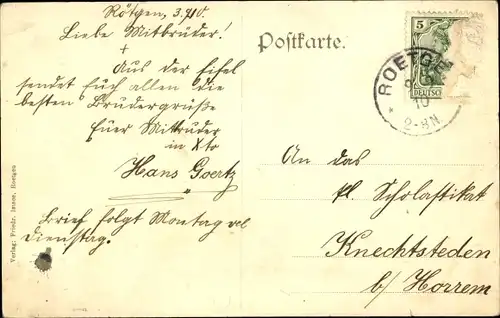 Rötgen, 3.9.10.
Liebe Mitbrüder!
+
Aus der Eifel
sendet Euch allen die
besten Brudergrüße
Euer Mitbruder
in Xto
Hans Goertz
Brief folgt Montag od
Dienstag.
Verlag: Friedr. Jansen, Roetgen
Postkarte.
5
DEUTSC
ROETGE
10
2-3N
An das
kl. Scholastikat
Knechtsteden
b/ Horrem